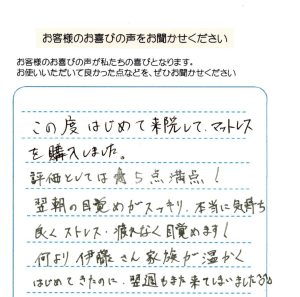 お客様のお喜びの声をお聞かせください
お客様のお喜びの声が私たちの喜びとなります。
お使いいただいて良かった点などを、ぜひお聞かせください
この度はじめて来院して、マットレス
を購入しました。
評価としては 5点満点！
翌朝の目覚めがスッキリ、本当に気持ち
良くストレス・疲れなく目覚めます！
何より伊藤さん家族が温かく
はじめてきたのに、翌週もまた来てしまいました